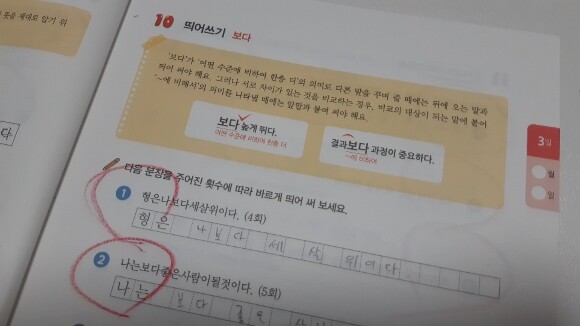 10 띄어쓰기 보다
'보다'가 '어떤 수준에 비하여 한층 더'의 의미로 다른 말을 꾸며 줄 때에는 뒤에 오는 말과
띄어 써야 해요. 그러나 서로 차이가 있는 것을 비교하는 경우, 비교의 대상이 되는 말에 붙어
'~에 비해서'의 의미를 나타낼 때에는 앞말과 붙여 써야 해요.
보다 높게 뛰다.
어떤 수준에 비하여 한층 더
결과보다 과정이 중요하다.
~에 비하여
3일
월
일
다음 문장을 주어진 횟수에 따라 바르게 띄어 써 보세요.
1 형은나보다세살위이다. (4회)
형은 나보다 세 살 위이다
2 나는보다좋은사람이될것이다. (5회)
나는 보다 좋은
다